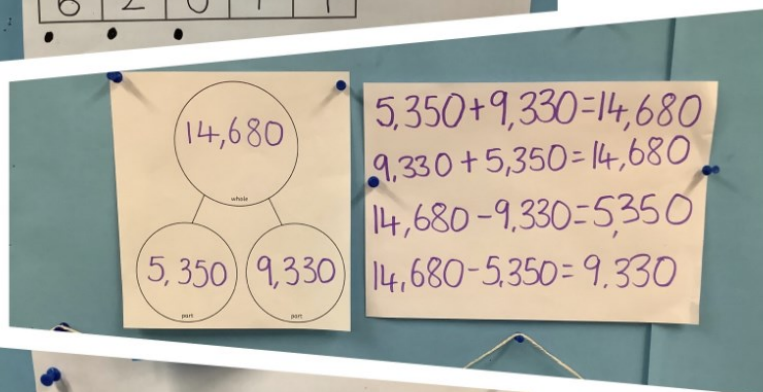 14,680
whole
5,350
part
9,330
part
5,350+9,330=14,680
9,330+5,350=14,680
14,680-9,330=5,350
14,680-5,350=9.330